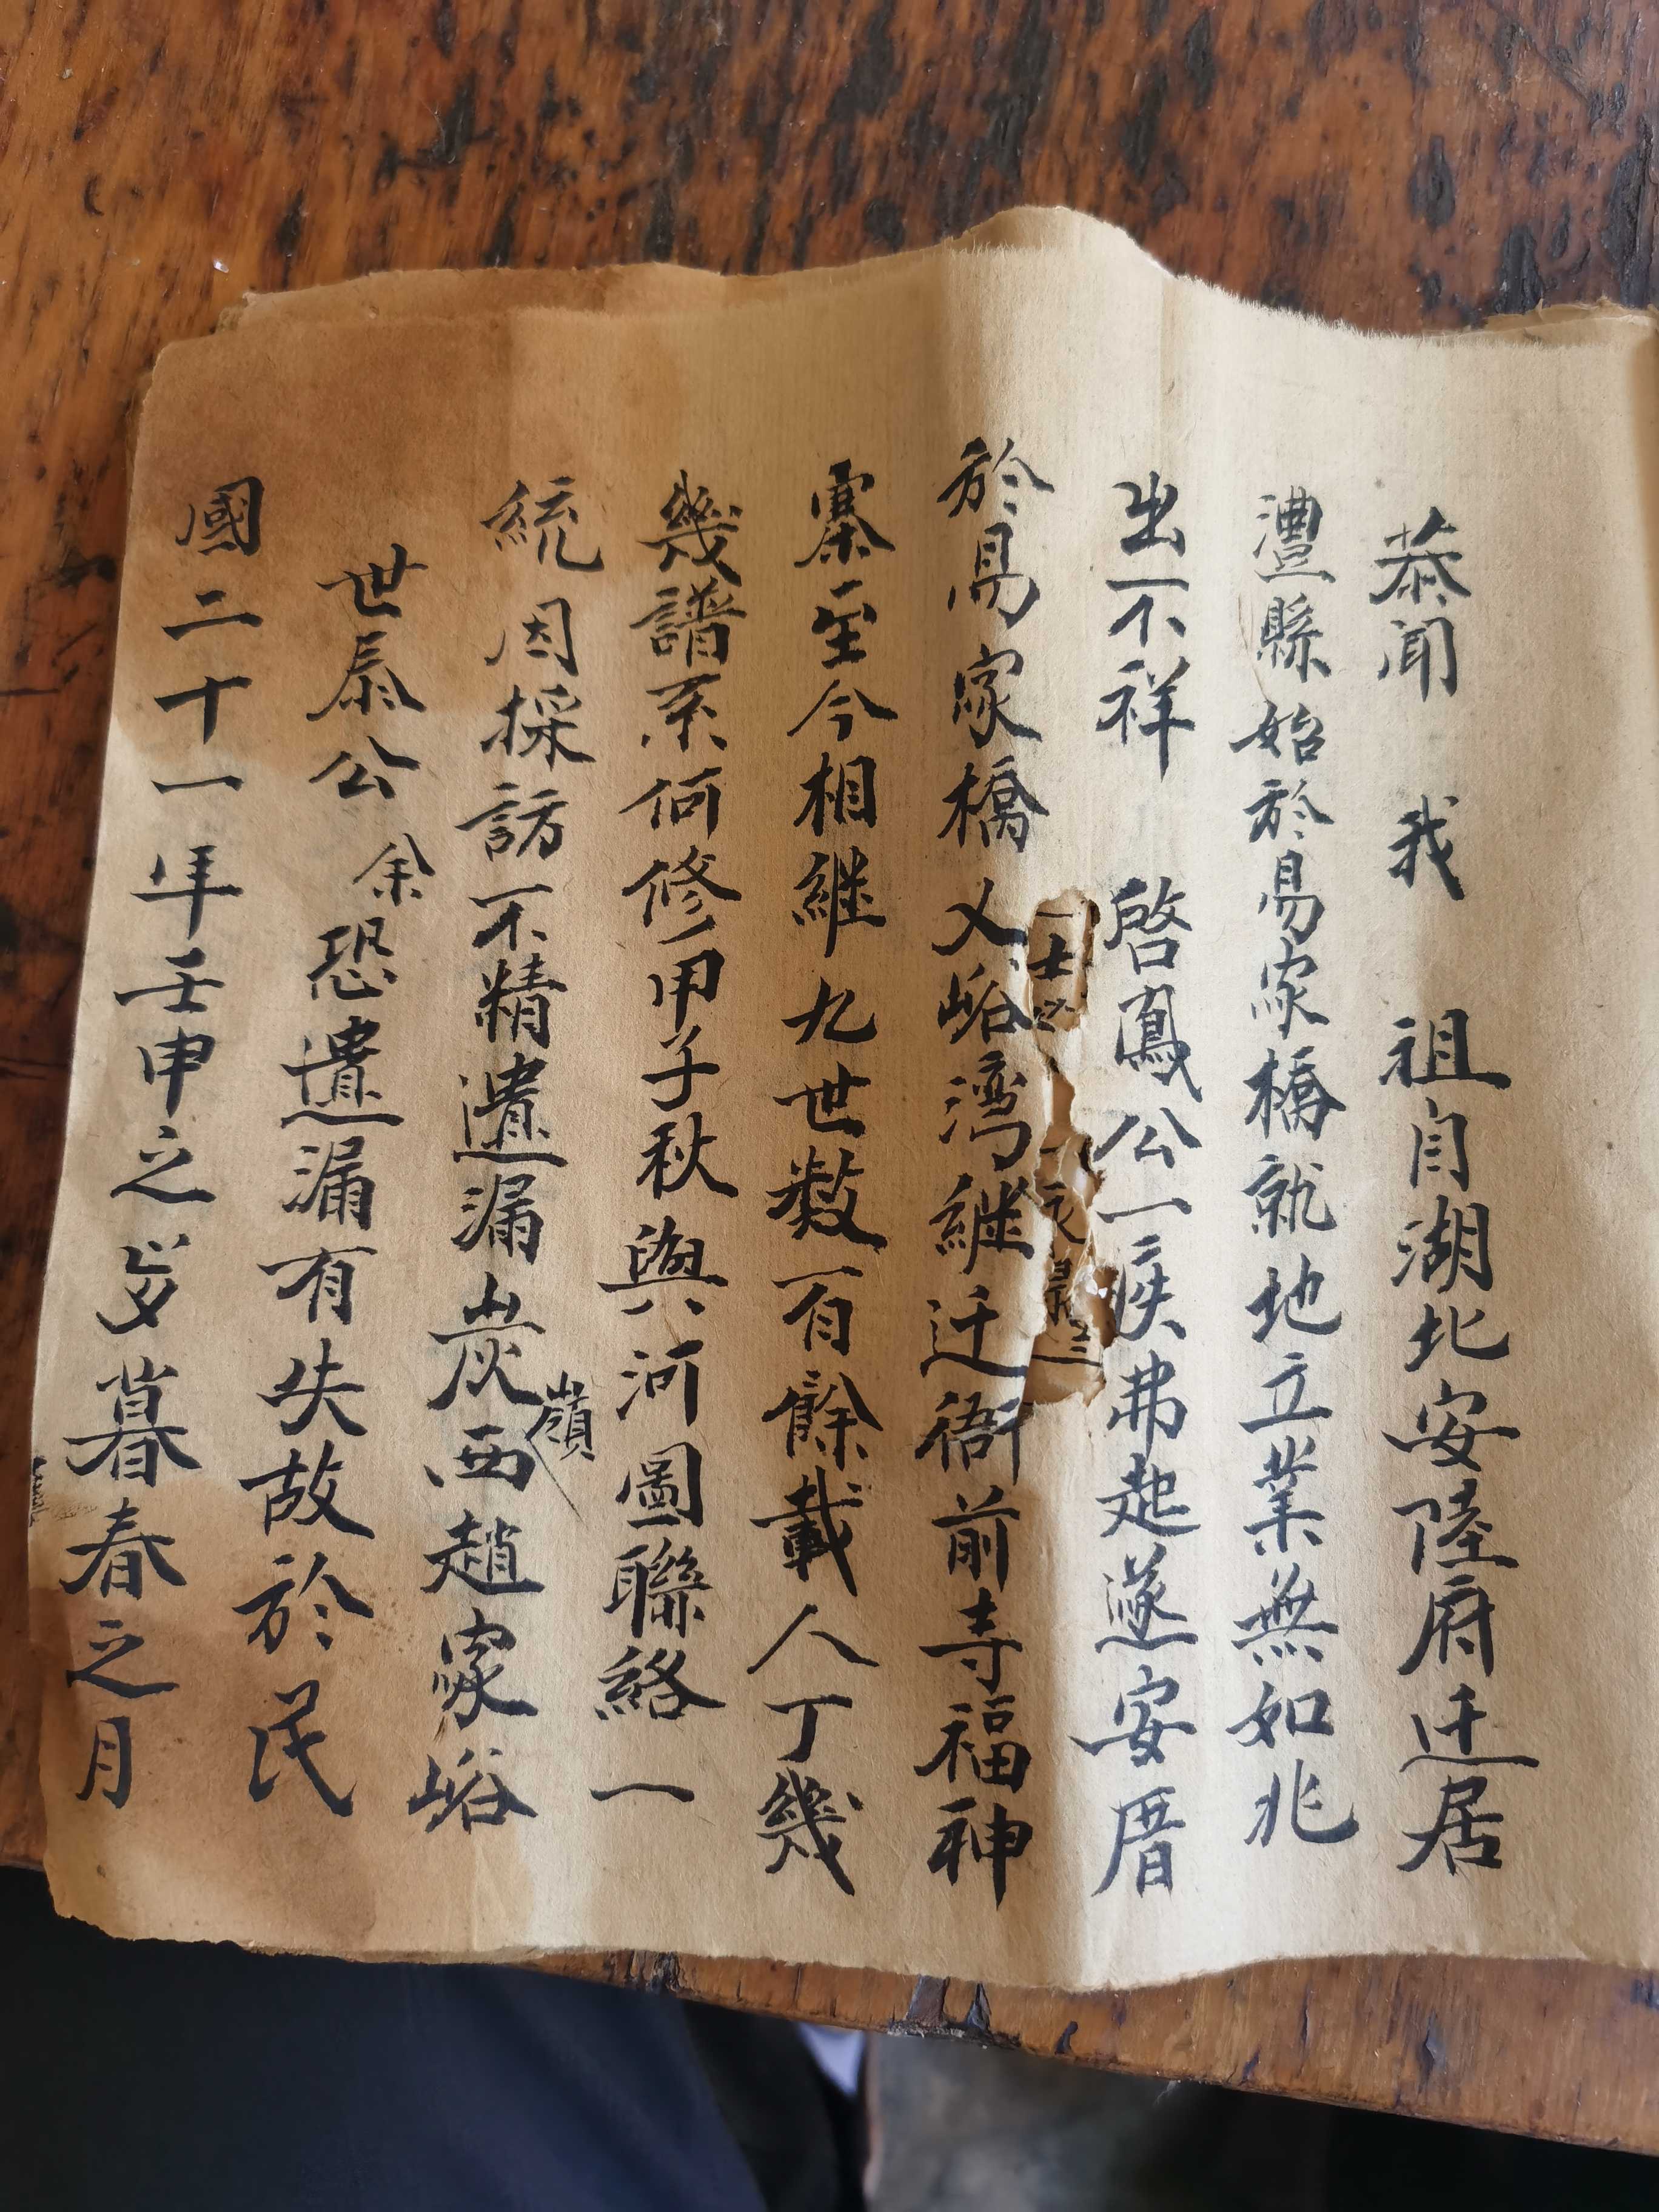 恭闻 我 祖自湖北安陸府迁居
澧縣始於易家橋就地立業無如兆
出不祥 啓鳳公一疾弗起遂安厝
於易家橋 又峪湾継迁衙前寺福神
寨至今相継九世数百餘載人丁幾
幾譜系何修甲子秋與河圖聯絡一
統因採訪不精遺漏炭嶺西趙家峪
世泰公余恐遺漏有失故於民
國二十一年壬申之岁暮春之月